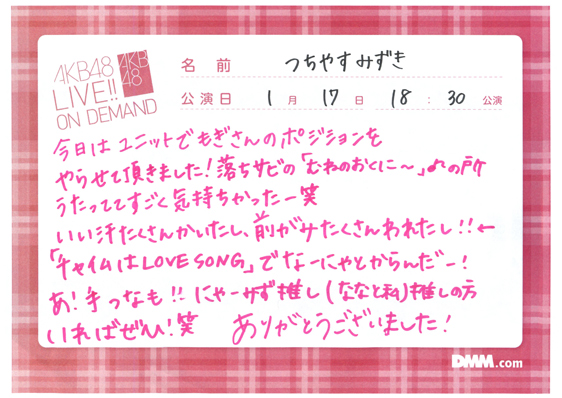 AKB48
LIVE!!
ON DEMAND
AKB
48
名 前 つちやすみずき
公演日 1 月 17 日 18 : 30 公演
今日はユニットでもぎさんのポジションを
やらせて頂きました!落ちサビの「むねのおくに〜」♪の所
うたっててすごく気持ちかったー笑
いい汗たくさんかいたし、前がみたくさんわれたし!!←
「チャイムはLOVE SONG」でなーにゃとからんだー!
あ!手つなも!!にゃーみず推し(ななと私)推しの方
いればぜひ!笑 ありがとうございました!
DMM.com